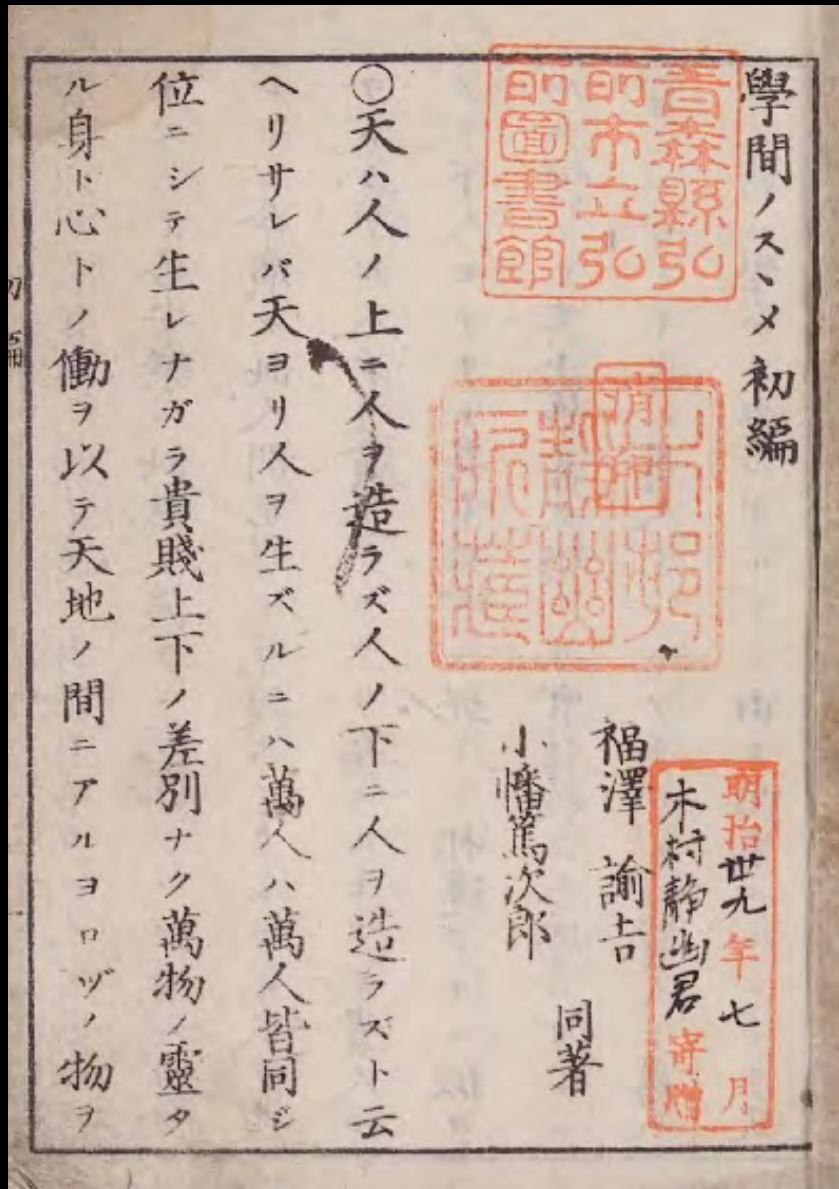 學問ノスヽメ初編
青森縣弘
前市立弘
前圖書館
消印
明治卅九年七月
木村静幽君寄贈
福澤諭吉
小幡篤次郎
同著
○天ハ人ノ上ニ人ヲ造ラズ人ノ下ニ人ヲ造ラズト云
ヘリサレバ天ヨリ人ヲ生ズルニハ萬人ハ萬人皆同ジ
位ニシテ生レナガラ貴賤上下ノ差別ナク萬物ノ靈タ
ル身ト心トノ働ヲ以テ天地ノ間ニアルヨロヅノ物ヲ
初編